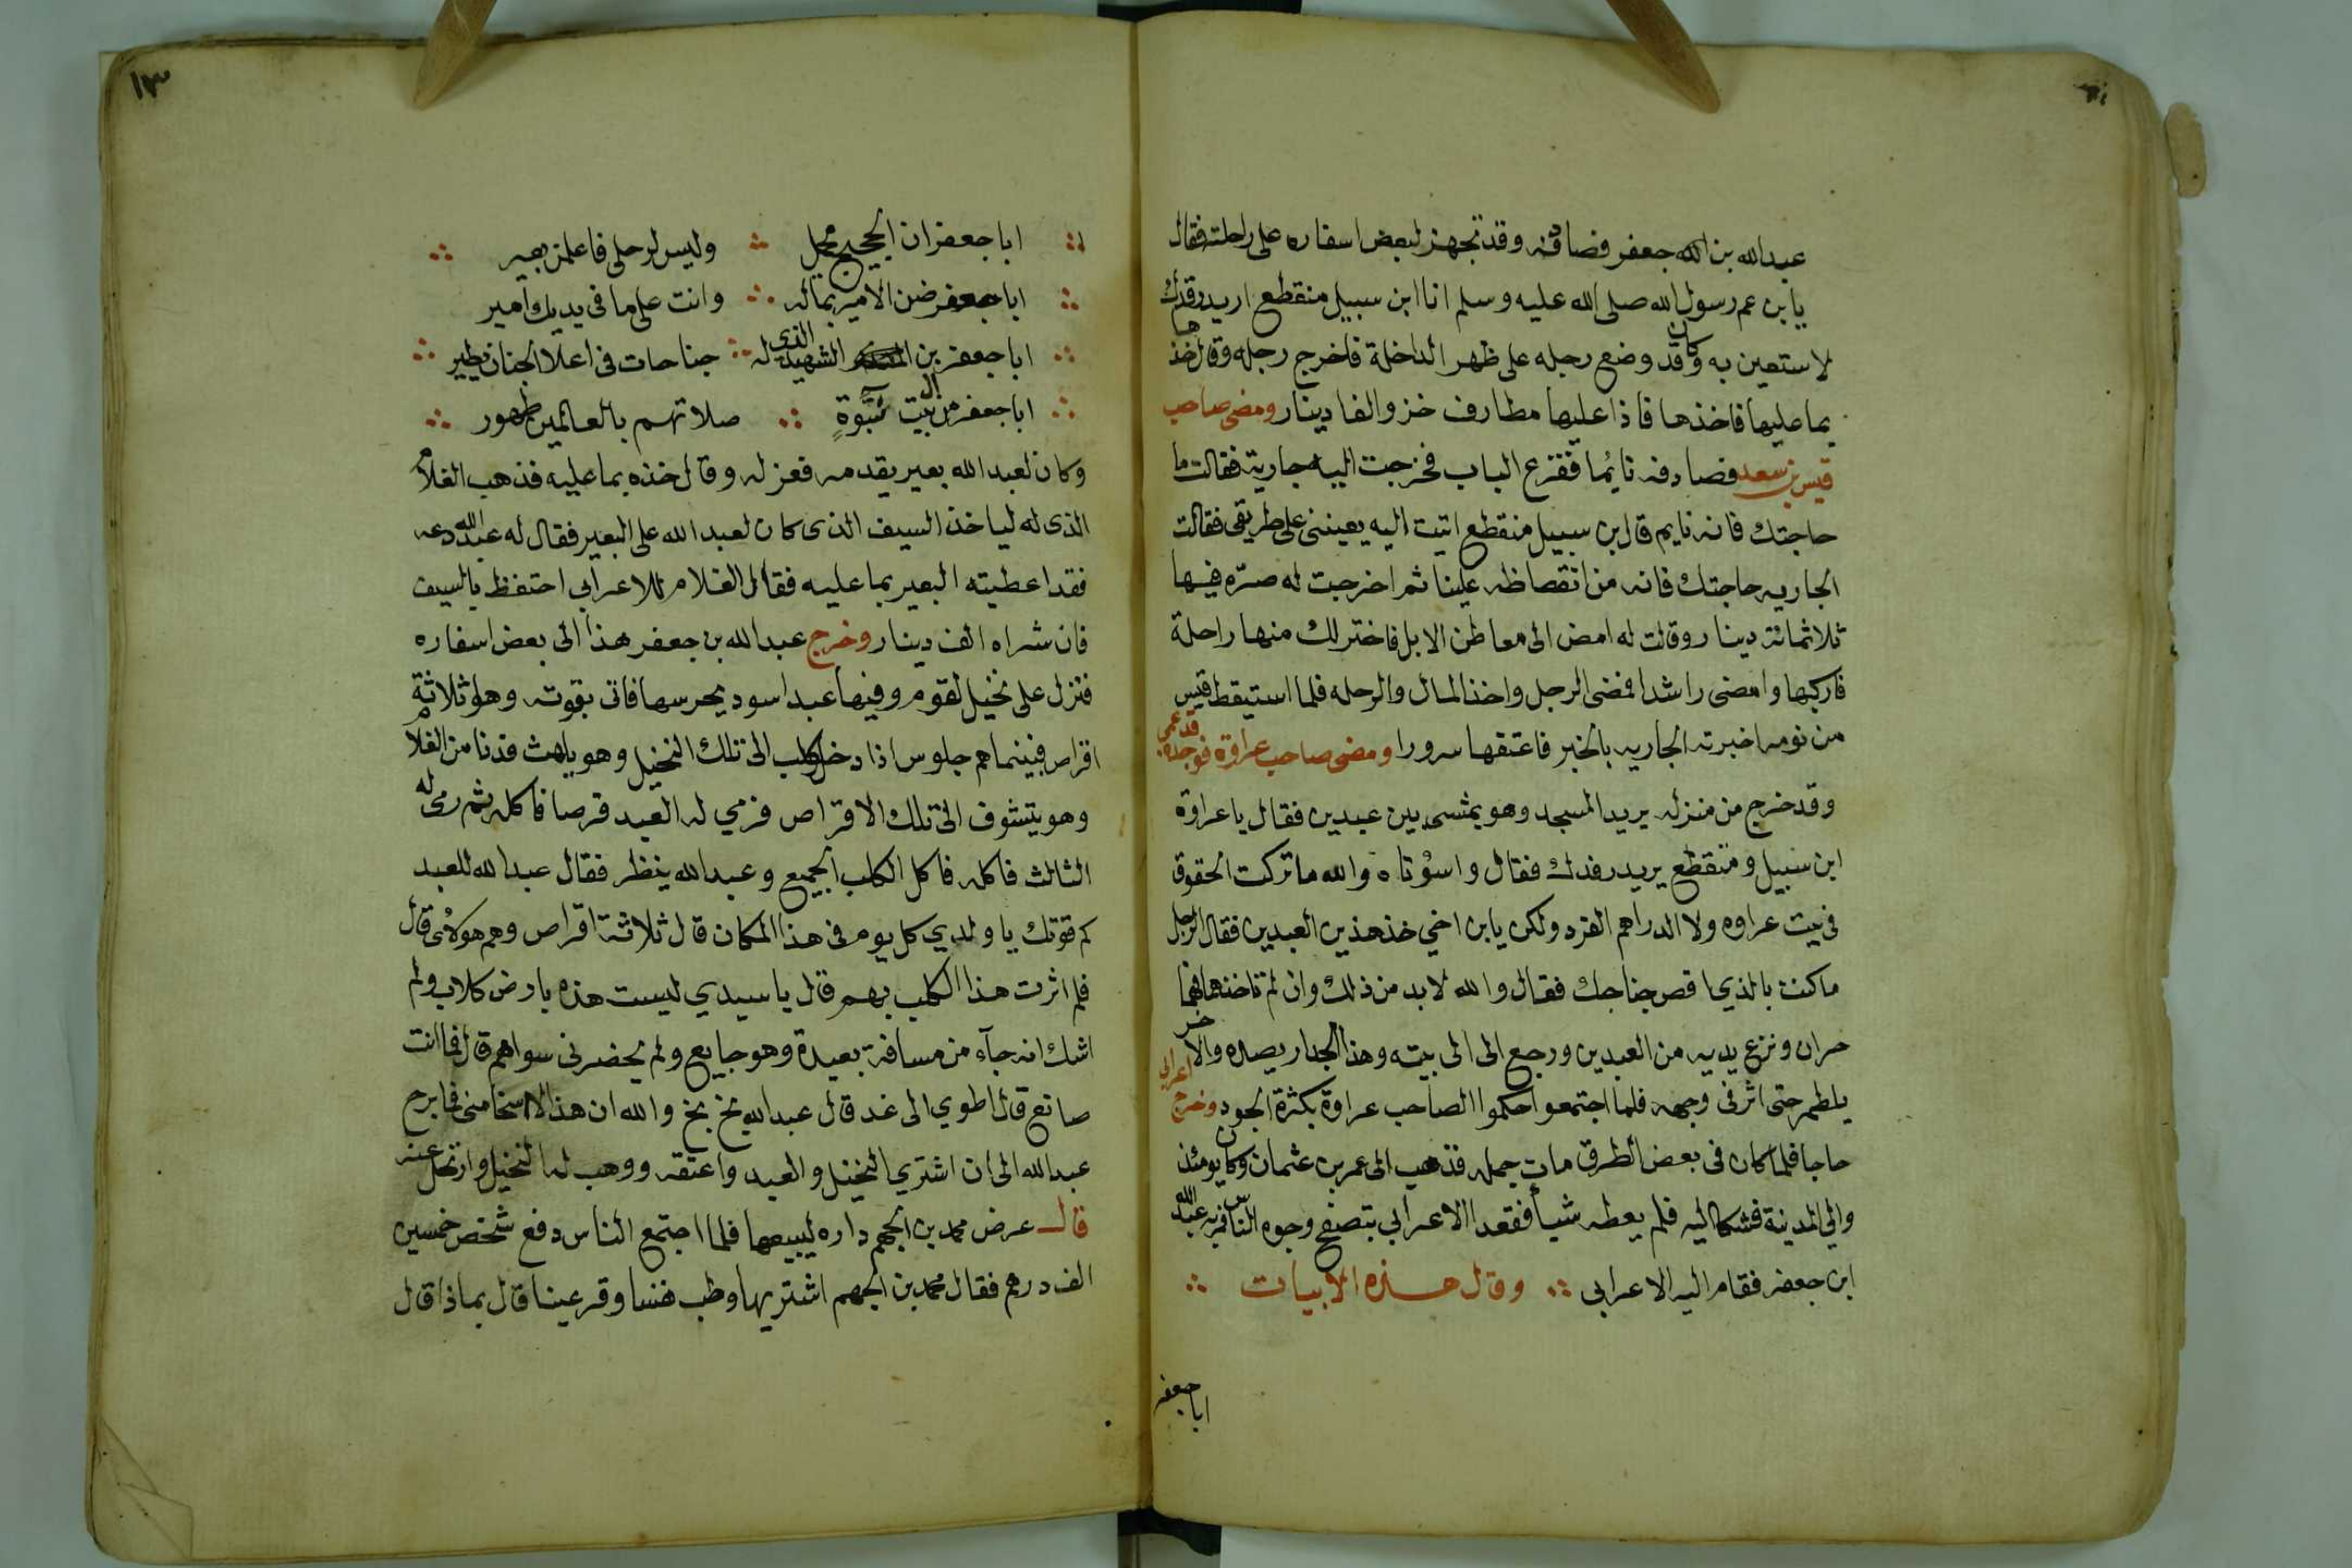 عبدالله بن جعفر فصادفه وقد تجهز لبعض اسفاره على راحلته فقال
يا بن عم رسول الله صلى الله عليه وسلم انا ابن سبيل منقطع اريد رفدك
لاستعين به وكان قد وضع رجله على ظهر الداخلة فاخرج رجله وقال خذها
بما عليها فاخذها فاذا عليها مطارف خز والفا دينار ومضى صاحب
قيس بن سعد فصادفه نايما فقرع الباب فخرجت اليه جارية فقالت ما
حاجتك فانه نايم قال ابن سبيل منقطع اتيت اليه يعينني على طريقي فقالت
الجاريه حاجتك فانه من انقصاظه علينا ثم اخرجت له صره فيها
ثلاثمائة دينار وقالت له امض الى معاطن الابل فاختر لك منها راحلة
فاركبها وامضى راشدا فمضى الرجل واخذ المال والرحله فلما استيقظ قيس
من نومه اخبرته الجاريه بالخبر فاعتقها سرورا ومضى صاحب عراوة فوجده قد عمى
وقد خرج من منزله يريد المسجد وهو يمشى بين عبدين فقال يا عراوة
ابن سبيل ومنقطع يريد رفدك فقال واسؤتاه والله ما تركت الحقوق
فى بيت عراوه ولا الدراهم الفرد ولكن يا بن اخي خذ هذين العبدين فقال الرجل
ما كنت بالذي اقص جناحك فقال والله لا بد من ذلك وان لم تاخذهما فهما
حران ونزع يديه من العبدين ورجع الى الى بيته وهذا الجدار يصده والاخر
يلطمه حتى اثر فى وجهه فلما اجتمعوا حكموا الصاحب عراوة بكثرة الجود وخرج اعرابي
حاجا فلما كان فى بعض الطرق مات جمله فذهب الى عمر بن عثمان وكان يومئذ
والي المدينة فشكا اليه فلم يعطه شيأ فقعد الاعرابي يتصفح وجوه الناس فمر به عبدالله
ابن جعفر فقام اليه الاعرابي وقال هذه الابيات
ابا جعفر
١٣
ابا جعفر ان الحجيج محل وليس لرحلى فاعلمن بعير
ابا جعفر ضن الامير بماله وانت على ما فى يديك امير
ابا جعفر بن الشهيد الذى له جناحات فى اعلا الجنان يطير
ابا جعفر من ال بيت نبوة صلاتهم بالعالمين طهور
وكان لعبدالله بعير يقدمه فعزله وقال خذه بما عليه فذهب الغلام
الذى له لياخذ السيف الذى كان لعبدالله على البعير فقال له عبدالله دعه
فقد اعطيته البعير بما عليه فقال الغلام للاعرابي احتفظ بالسيف
فان شراه الف دينار وخرج عبدالله بن جعفر هذا الى بعض اسفاره
فنزل على نخيل لقوم وفيها عبد اسود يحرسها فاتى بقوته وهو ثلاثة
اقراص فبينما هم جلوس اذا دخل كلب الى تلك النخيل وهو يلهث فدنا من الغلام
وهو يتشوف الى تلك الاقراص فرمي له العبد قرصا فاكله ثم رمى له
الثالث فاكله فاكل الكلب الجميع وعبدالله ينظر فقال عبدالله للعبد
كم قوتك يا ولدي كل يوم فى هذا المكان قال ثلاثة اقراص وهم هولاى قال
فلم اثرت هذا الكلب بهم قال يا سيدي ليست هذه بارض كلاب ولم
اشك انه جآء من مسافة بعيدة وهو جايع ولم يحضرنى سواهم قال فما انت
صانع قال اطوي الى غد قال عبدالله بخ بخ والله ان هذا لاسخا منى فما برح
عبدالله الى ان اشتري النخيل والعبد واعتقه ووهب له النخيل وارتحل عنه
قال عرض محمد بن الجهم داره ليبيعها فلما اجتمع الناس دفع شخص خمسين
الف درهم فقال محمد بن الجهم اشتريها وطب نفسا وقر عينا قال بماذا قال